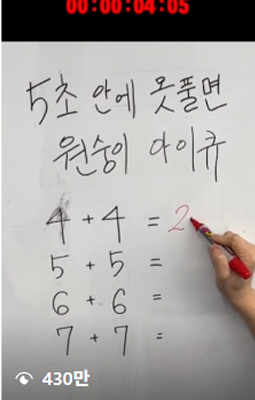 00:00:04:05
5초 안에 못풀면
원숭이 아이큐
4 + 4 = 2
5 + 5 =
6 + 6 =
7 + 7 =
430만